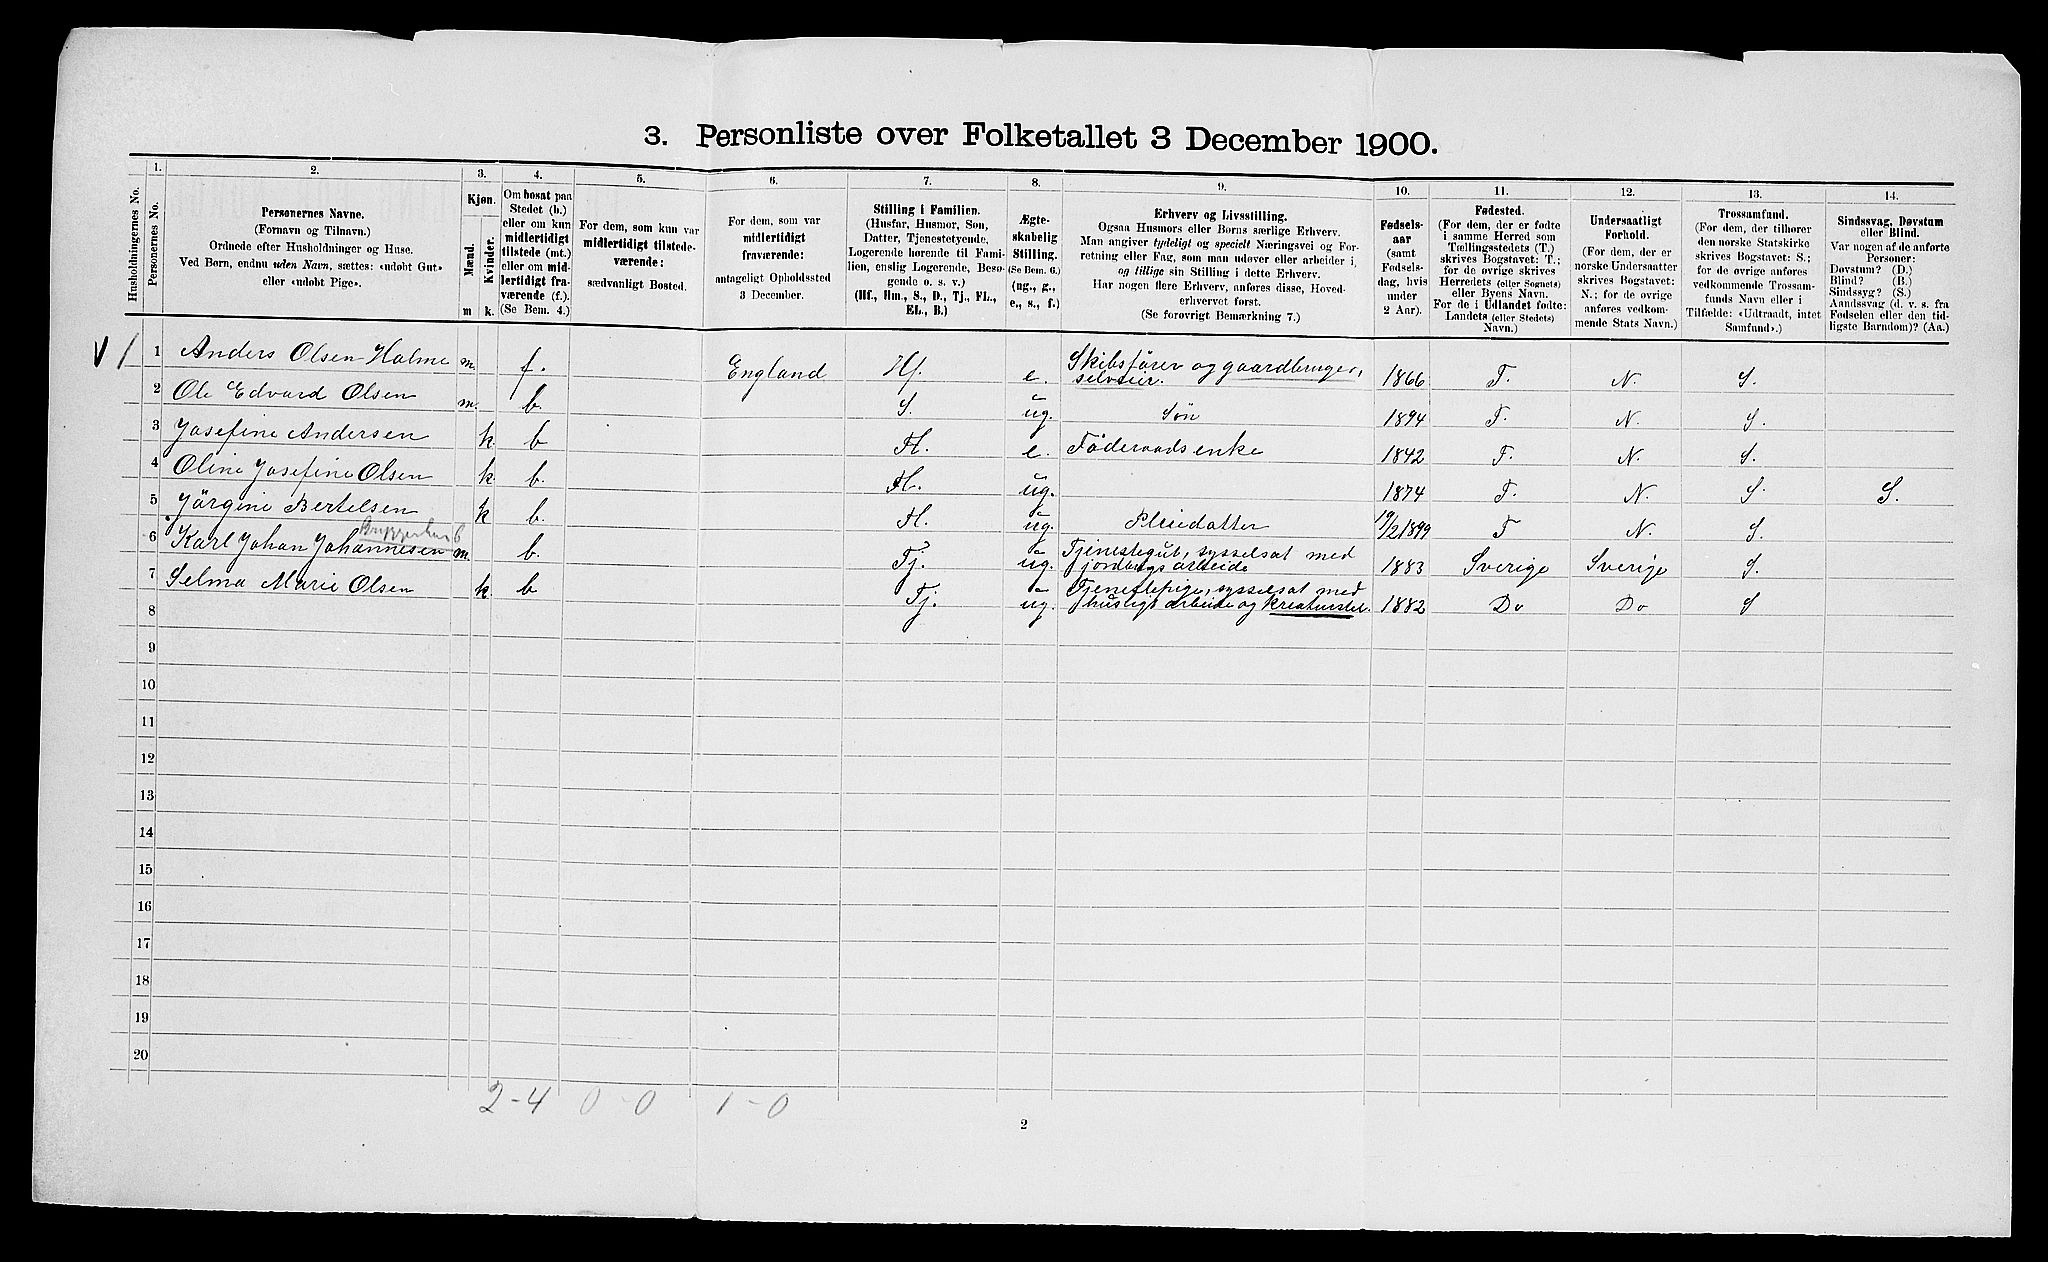 3. Personliste over Folketallet 3 December 1900.
Husholdningernes No.
1.
Personernes No.
2.
Personernes Navne.
(Fornavn og Tilnavn.)
Ordnede efter Husholdninger og Huse.
Ved Børn, endnu uden Navn, sættes: «udøbt Gut»
eller «udøbt Pige».
3.
Kjøn.
Mænd.
Kvinder.
m
k.
4.
Om bosat paa
Stedet (b.)
eller om kun
midlertidigt
tilstede (mt.)
eller om mid-
lertidigt fra-
værende (f.).
(Se Bem. 4.)
5.
For dem, som kun var
midlertidigt tilstede-
værende:
sædvanligt Bosted.
6.
For dem, som var
midlertidigt
fraværende:
antageligt Opholdssted
3 December.
7.
Stilling i Familien.
(Husfar, Husmor, Søn,
Datter, Tjenestetyende,
Logerende hørende til Fami-
lien, enslig Logerende, Besø-
gende o. s. v.)
(Hf., Hm., S., D., Tj., FL.,
EL., B.)
8.
Ægte-
skabelig
Stilling.
(Se Bem. 6.)
(ug., g.,
e., s., f.)
9.
Erhverv og Livsstilling.
Ogsaa Husmors eller Børns særlige Erhverv.
Man angiver tydeligt og specielt Næringsvei og For-
retning eller Fag, som man udøver eller arbeider i,
og tillige sin Stilling i dette Erhverv.
Har nogen flere Erhverv, anføres disse, Hoved-
erhvervet først.
(Se forøvrigt Bemærkning 7.)
10.
Fødsels-
aar
(samt
Fødsels-
dag, hvis
under
2 Aar).
11.
Fødested.
(For dem, der er fødte
i samme Herred som
Tællingsstedets (T.)
skrives Bogstavet: T.;
for de øvrige skrives
Herredets (eller Sognets)
eller Byens Navn.
For de i Udlandet fødte:
Landets (eller Stedets)
Navn.)
12.
Undersaatligt
Forhold.
(For dem, der er
norske Undersaatter
skrives Bogstavet:
N.; for de øvrige
anføres vedkom-
mende Stats Navn.)
13.
Trossamfund.
(For dem, der tilhører
den norske Statskirke
skrives Bogstavet: S.;
for de øvrige anføres
vedkommende Trossam-
funds Navn eller i
Tilfælde: «Udtraadt, intet
Samfund».)
14.
Sindssvag, Døvstum
eller Blind.
Var nogen af de anførte
Personer:
Døvstum? (D.)
Blind? (B.)
Sindssyg? (S.)
Aandssvag (d. v. s. fra
Fødselen eller den tid-
ligste Barndom)? (Aa.)
V 1 1 Anders Olsen Holme m. f. England Hf. e. Skibsfører og gaardbruger, selveier. 1866 T. N. S.
2 Ole Edvard Olsen m. b. S. ug. Søn 1894 T. N. S.
3 Josefine Andersen k. b Fl. e. Føderaadsenke 1842 T. N. S.
4 Oline Josefine Olsen k. b. Fl. ug. 1874 T. N. S. S.
5 Jörgine Bertelsen k b. Fl. ug. Pleiedatter 19/2 1899 T N. S.
6 Karl Johan Johannesen m. b. Tj. ug. Tjenestegut, sysselsat med jordbrugsarbeide 1883 Sverige Sverige S.
7 Selma Marie Olsen k. b Tj. ug. Tjenestepige, sysselsat med husligt arbeide og kreaturstel. 1882 Do Do S
8
9
10
11
12
13
14
15
16
17
18
19
20
2-4 0-0 1-0
2